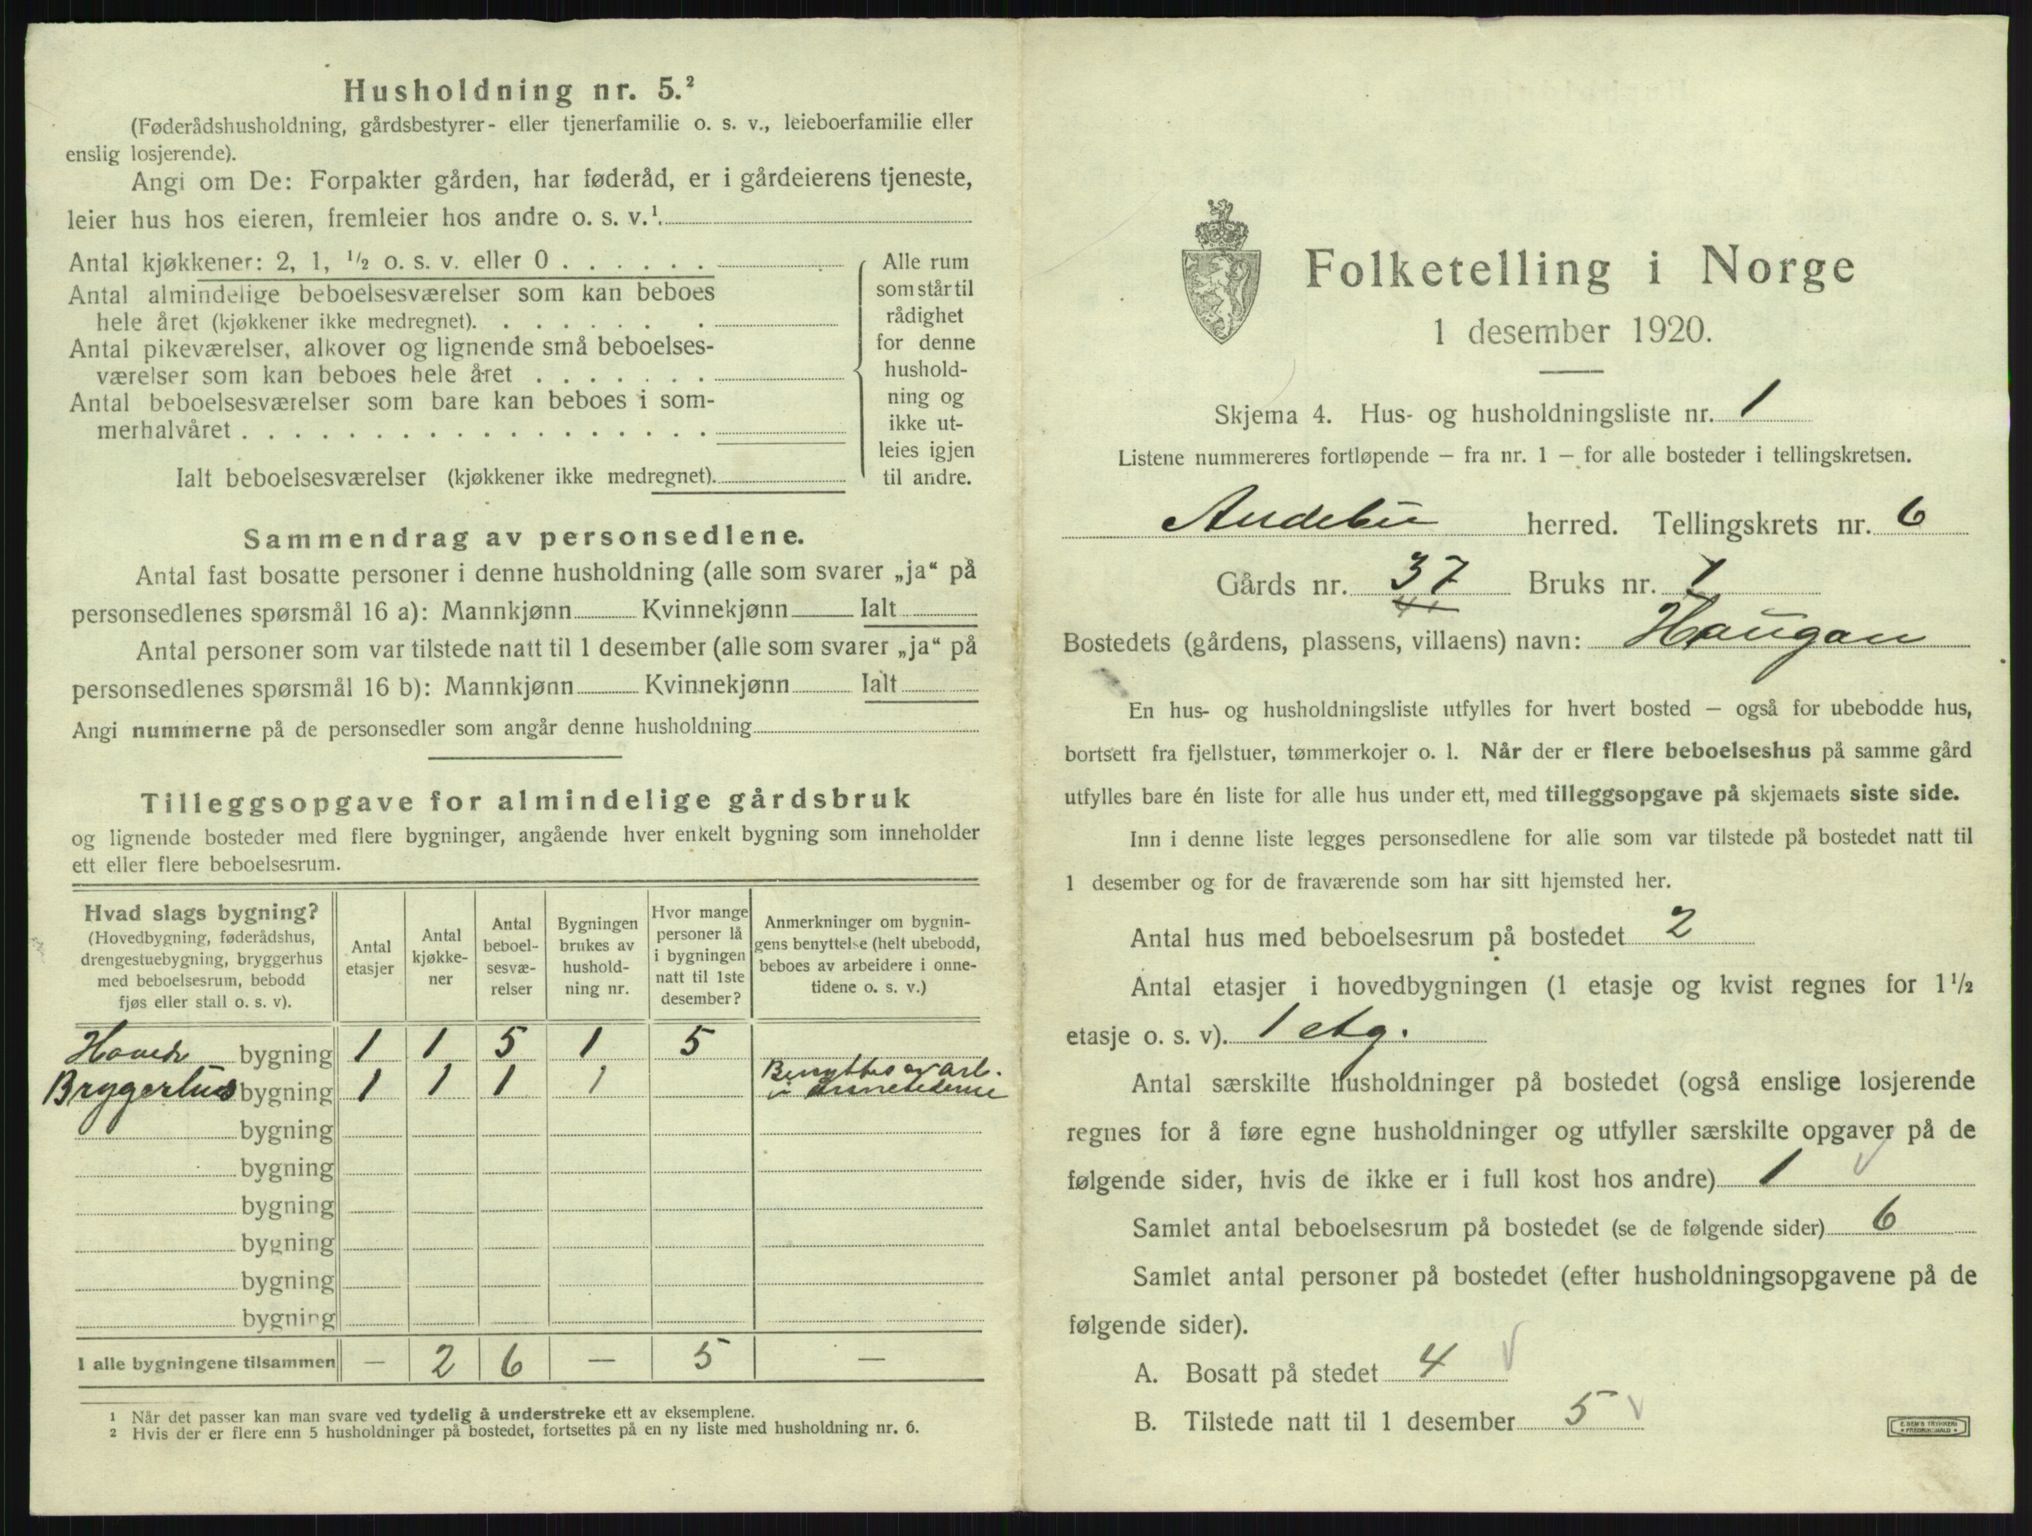 Husholdning nr. 5.²
(Føderådshusholdning, gårdsbestyrer- eller tjenerfamilie o. s. v., leieboerfamilie eller
enslig losjerende).
Angi om De: Forpakter gården, har føderåd, er i gårdeierens tjeneste,
leier hus hos eieren, fremleier hos andre o. s. v.¹
Antal kjøkkener: 2, 1, ¹/₂ o. s. v. eller 0
Antal almindelige beboelsesværelser som kan beboes
hele året (kjøkkener ikke medregnet).
Antal pikeværelser, alkover og lignende små beboelses-
værelser som kan beboes hele året
Antal beboelsesværelser som bare kan beboes i som-
merhalvåret
Ialt beboelsesværelser (kjøkkener ikke medregnet).
Alle rum
som står til
rådighet
for denne
hushold-
ning og
ikke ut-
leies igjen
til andre.
Sammendrag av personsedlene.
Antal fast bosatte personer i denne husholdning (alle som svarer „ja“ på
personsedlenes spørsmål 16 a): Mannkjønn Kvinnekjønn Ialt
Antal personer som var tilstede natt til 1 desember (alle som svarer „ja“ på
personsedlenes spørsmål 16 b): Mannkjønn Kvinnekjønn Ialt
Angi nummerne på de personsedler som angår denne husholdning
Tilleggsopgave for almindelige gårdsbruk
og lignende bosteder med flere bygninger, angående hver enkelt bygning som inneholder
ett eller flere beboelsesrum.
Hvad slags bygning?
(Hovedbygning, føderådshus,
drengestuebygning, bryggerhus
med beboelsesrum, bebodd
fjøs eller stall o. s. v).
Antal
etasjer
Antal
kjøkke-
ner
Antal
beboel-
sesvæ-
relser
Bygningen
brukes av
hushold-
ning nr.
Hvor mange
personer lå
i bygningen
natt til 1ste
desember?
Anmerkninger om bygnin-
gens benyttelse (helt ubebodd,
beboes av arbeidere i onne-
tidene o. s. v.)
Hoved bygning 1 1 5 1 5
Brygerhus bygning 1 1 1 1 Benyttes av arb.
i onnetiderne
bygning
bygning
bygning
bygning
bygning
bygning
I alle bygningene tilsammen — 2 6 — 5 —
¹ Når det passer kan man svare ved tydelig å understreke ett av eksemplene.
² Hvis der er flere enn 5 husholdninger på bostedet, fortsettes på en ny liste med husholdning nr. 6.
Folketelling i Norge
1 desember 1920.
Skjema 4. Hus- og husholdningsliste nr. 1
Listene nummereres fortløpende – fra nr. 1 – for alle bosteder i tellingskretsen.
Andebu herred. Tellingskrets nr. 6
Gårds nr. 37 Bruks nr. 1
Bostedets (gårdens, plassens, villaens) navn: Haugan
En hus- og husholdningsliste utfylles for hvert bosted – også for ubebodde hus,
bortsett fra fjellstuer, tømmerkojer o. l. Når der er flere beboelseshus på samme gård
utfylles bare én liste for alle hus under ett, med tilleggsopgave på skjemaets siste side.
Inn i denne liste legges personsedlene for alle som var tilstede på bostedet natt til
1 desember og for de fraværende som har sitt hjemsted her.
Antal hus med beboelsesrum på bostedet 2
Antal etasjer i hovedbygningen (1 etasje og kvist regnes for 1¹/₂
etasje o. s. v). 1 etg.
Antal særskilte husholdninger på bostedet (også enslige losjerende
regnes for å føre egne husholdninger og utfyller særskilte opgaver på de
følgende sider, hvis de ikke er i full kost hos andre) 1
Samlet antal beboelsesrum på bostedet (se de følgende sider) 6
Samlet antal personer på bostedet (efter husholdningsopgavene på de
følgende sider).
A. Bosatt på stedet 4
B. Tilstede natt til 1 desember 5
E. SEM'S TRYKKERI
FREDRIKSHALD